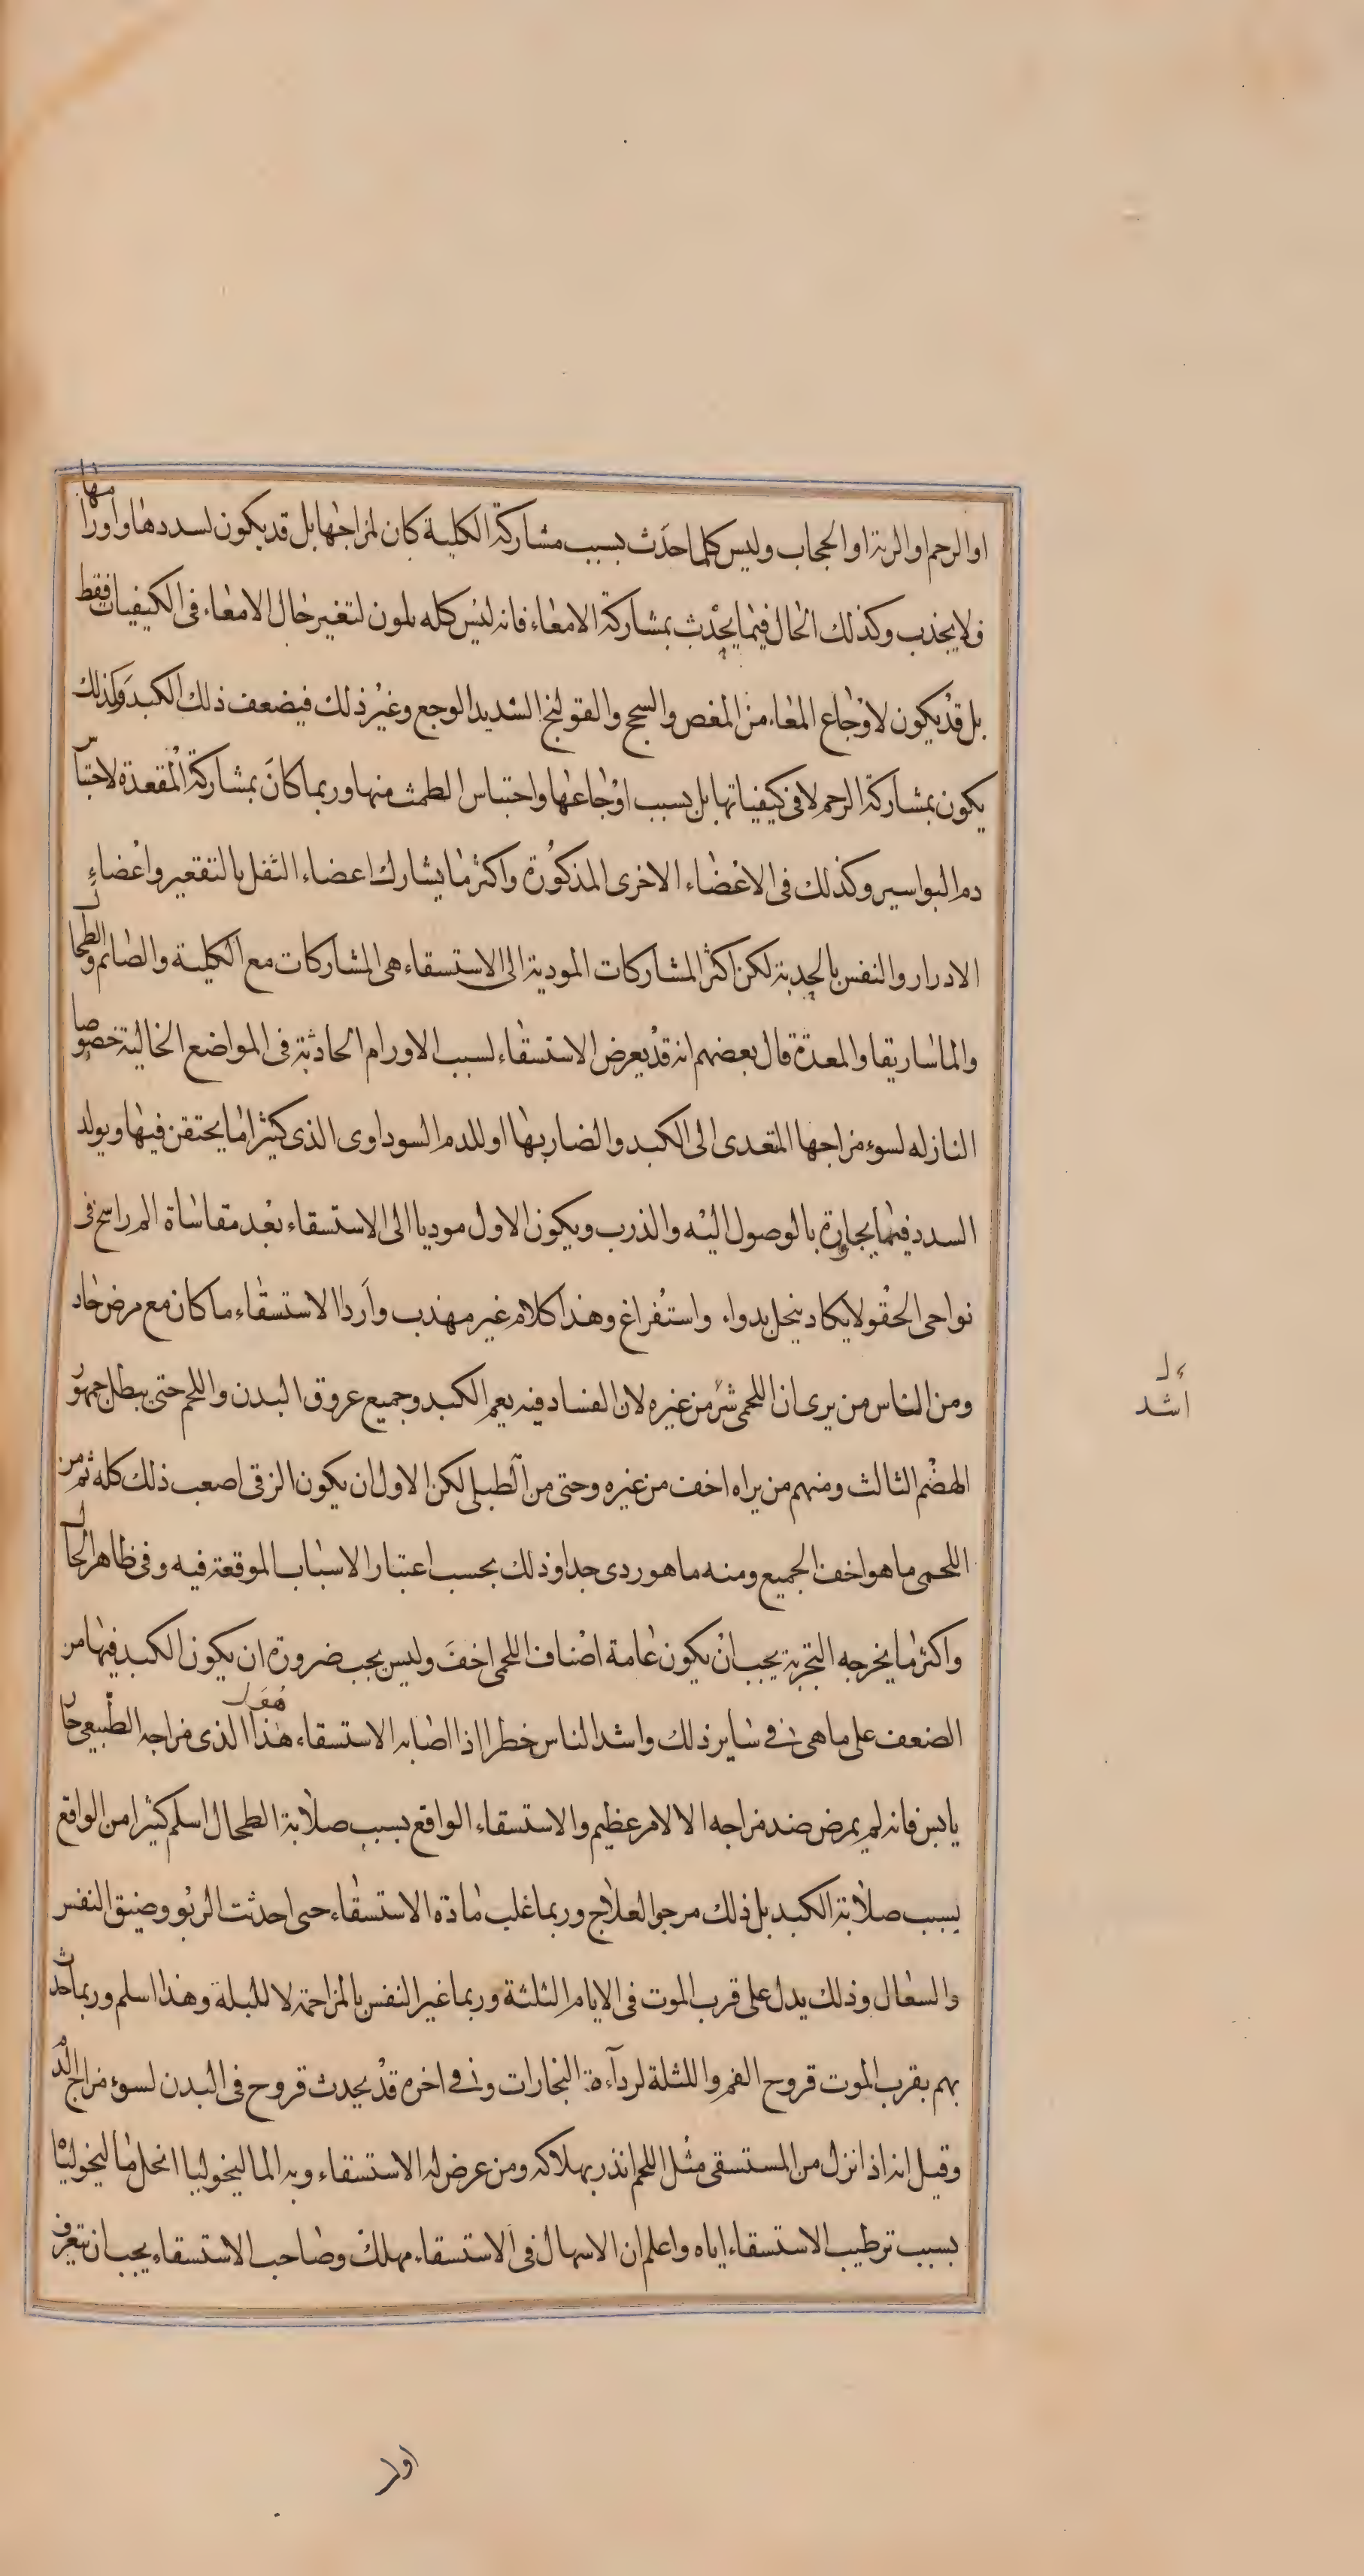 او الرحم او الرية او الحجاب وليس كلما احدث بسبب مشاركة الكلية كان لمزاجها بل قد يكون لسددها واورامها
ولا يجذب وكذلك الحال فيما يحدث بمشاركة الامعاء فانه ليس كله يكون لتغير حال الامعاء في الكيفيات فقط
بل قد يكون لاوجاع المعاء من المغص والسحج والقولنج الشديد الوجع وغير ذلك فيضعف ذلك الكبد وكذلك
يكون بمشاركة الرحم لا في كيفياتها بل بسبب اوجاعها واحتباس الطمث منها وربما كان بمشاركة المقعدة لاحتباس
دم البواسير وكذلك في الاعضاء الاخرى المذكورة واكثر ما يشارك اعضاء الثفل بالتقعير واعضاء
الادرار والنفس بالحدبة لكن اكثر المشاركات المودية الى الاستسقاء هي المشاركات مع الكلية والصائم والطحال
والماساريقا والمعدة قال بعضهم انه قد يعرض الاستسقاء لسبب الاورام الحادثة في المواضع الخالية خصوصا
النازله لسوء مزاجها المتعدى الى الكبد والضار بها او للدم السوداوى الذى كثيرا ما يحتقن فيها ويولد
السدد فيما يجاوره بالوصول اليه والذرب ويكون الاول موديا الى الاستسقاء بعد مقاساة الم راسخ في
نواحى الحقو لا يكاد ينحل بدواء واستفراغ وهذا كلام غير مهذب واردا الاستسقاء ما كان مع مرض حاد
ومن الناس من يرى ان اللحمى شر من غيره لان الفساد فيه يعم الكبد وجميع عروق البدن واللحم حتى يبطل جمهور
الهضم الثالث ومنهم من يراه اخف من غيره وحتى من الطبلى لكن الاول ان يكون الزقى اصعب ذلك كله ثم من
اللحمى ما هو اخف الجميع ومنه ما هو ردى جدا وذلك بحسب اعتبار الاسباب الموقعة فيه وفى ظاهر الحال
واكثر ما يخرجه التجربة يجب ان يكون عامة اصناف اللحمى اخف وليس يجب ضرورة ان يكون الكبد فيها من
الضعف على ما هى في ساير ذلك واشد الناس خطرا اذا اصابه الاستسقاء هذا الذى مزاجه الطبيعى حار
يابس فانه لم يمرض ضد مزاجه الا لامر عظيم والاستسقاء الواقع بسبب صلابة الطحال اسلم كثيرا من الواقع
بسبب صلابة الكبد بل ذلك مرجو العلاج وربما غلب مادة الاستسقاء حتى احدثت الربو وضيق النفس
والسعال وذلك يدل على قرب الموت في الايام الثلثة وربما غير النفس بالمزاحمة لا للبلة وهذا اسلم وربما حدث
بهم بقرب الموت قروح الفم واللثة لرداءة البخارات وفى اخره قد يحدث قروح في البدن لسوء مزاج الدم
وقيل انه اذا نزل من المستسقى مثل اللحم انذر بهلاكه ومن عرض له الاستسقاء وبه الماليخوليا انحل ماليخولياه
بسبب ترطيب الاستسقاء اياه واعلم ان الاسهال في الاستسقاء مهلك وصاحب الاستسقاء يجب ان يتعرف
اشد
اولا